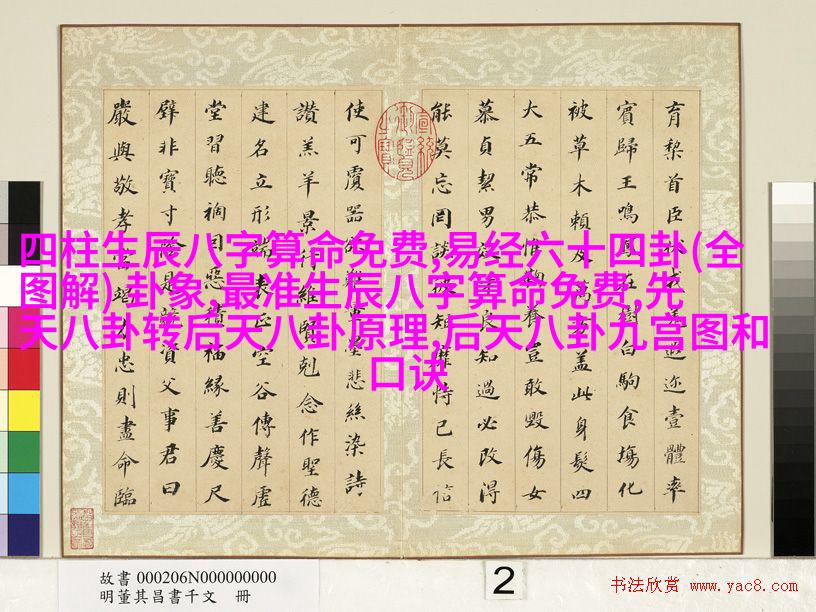 育黎首臣伏戎羌遐迩壹體率
賓歸王鳴鳳在樹白駒食場化
被草木賴及萬方蓋此身髮四
大五常恭惟鞠養豈敢毀傷女
慕貞絜男效才良知過必改得
能莫忘罔談彼短靡恃己長信
使可覆器欲難量墨悲絲染詩
讚羔羊景行維賢剋念作聖德
建名立形端表正空谷傳聲虛
堂習聽禍因惡積福緣善慶尺
璧非寶寸陰是競資父事君曰
嚴與敬孝當竭力忠則盡命臨
四柱生辰八字算命免费,易经六十四卦(全
图解)卦象,最准生辰八字算命免费,先
天八卦转后天八卦原理,后天八卦九宫图和
口诀
故書 000206N000000000
明董其昌書千文 冊
2
书法欣赏 www.yac8.com